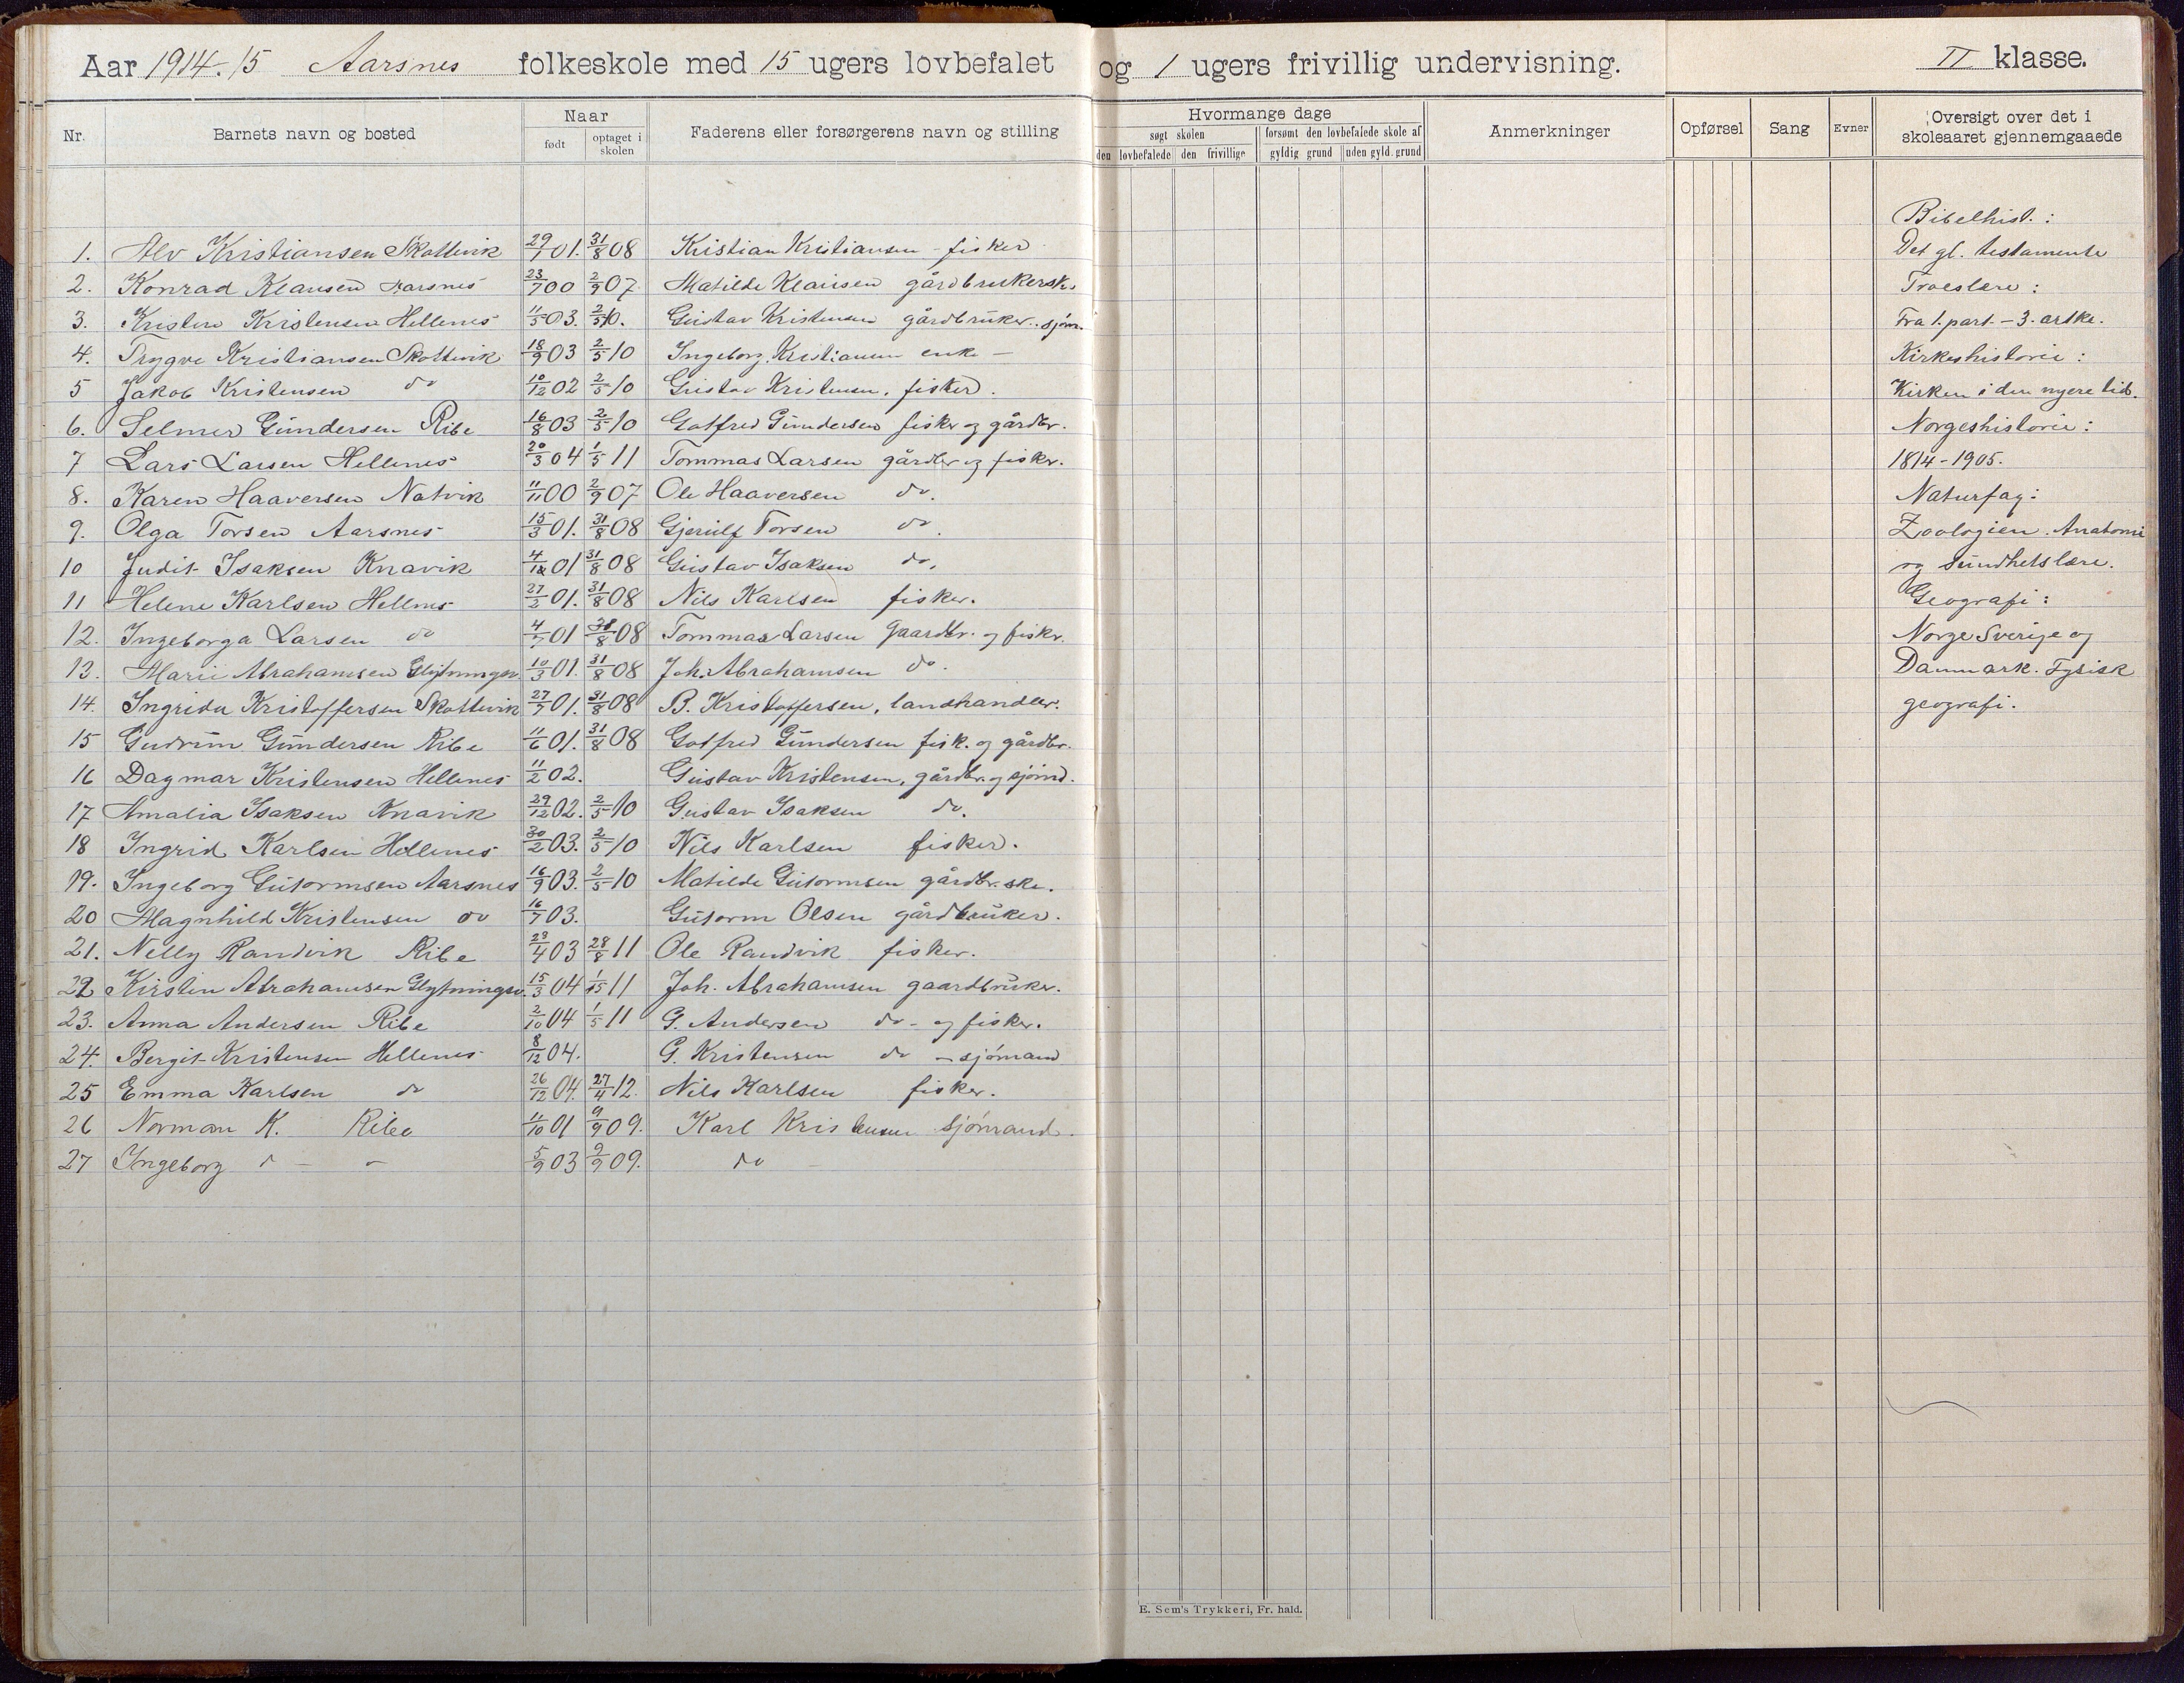 Aar 1914-15 Aarsnes folkeskole med 15 ugers lovbefalet og 1 ugers frivillig undervisning. II klasse.
Nr. Barnets navn og bosted Naar Faderens eller forsørgerens navn og stilling Hvormange dage Anmerkninger Opførsel Sang Evner Oversigt over det i
født optaget i skolen søgt skolen forsømt den lovbefalede skole af skoleaaret gjennemgaaede
den lovbefalede den frivillige gyldig grund uden gyld. grund
Bibelhist.:
1. Alv Kristiansen Skottevik 29/1 01. 31/8 08 Kristian Kristiansen - fisker Det gl. testamente
2. Konrad Klausen Aarsnes 23/7 00 2/9 07 Matilde Klausen gårdbrukerske Troeslære:
3. Kristen Kristensen Hellenes 11/5 03. 2/5 10. Gustav Kristensen gårdbruker. sjøm. Fra 1. part. - 3. artke.
4. Trygve Kristiansen Skottevik 18/9 03 2/5 10 Ingeborg Kristiansen enke - Kirkeshistorie:
5 Jakob Kristensen do 10/12 02 2/5 10 Gustav Kristensen. fisker. Kirken i den nyere tid.
6. Selmer Gundersen Ribe 16/8 03 2/5 10 Gotfred Gundersen fisker og gårdbr. Norgeshistorie:
7 Lars Larsen Hellenes 20/3 04 1/5 11 Tommas Larsen gårdbr og fisker. 1814-1905.
8. Karen Haaversen Natvik 11/11 00 2/9 07 Ole Haaversen do. Naturfag:
9. Olga Torsen Aarsnes 15/3 01. 31/8 08 Gjerulf Torsen do. Zoologien. Anatomi
10 Judit Isaksen Knavik 4/12 01 31/8 08 Gustav Isaksen do. og sundhetslære.
11 Helene Karlsen Hellenes 27/2 01. 31/8 08 Nils Karlsen fisker. Geografi:
12. Ingeborga Larsen do 4/7 01 31/8 08 Tommas Larsen Gaardbr. og fisker. Norge Sverige og
13. Marie Abrahamsen Glytningsv. 10/3 01. 31/8 08 Joh. Abrahamsen do. Danmark. Fysisk
14. Ingrida Kristoffersen Skottevik 27/7 01. 31/8 08 B. Kristoffersen, landhandler. geografi.
15 Gudrun Gundersen Ribe 11/6 01. 31/8 08 Gotfred Gundersen fisk. og gårdbr.
16 Dagmar Kristensen Hellenes 11/2 02. Gustav Kristensen, gårdbr. og sjømd.
17 Amalia Isaksen Knavik 29/12 02. 2/5 10 Gustav Isaksen do.
18 Ingrid Karlsen Hellenes 30/2 03. 2/5 10 Nils Karlsen fisker.
19. Ingeborg Gutormsen Aarsnes 16/9 03. 2/5 10 Matilde Gutormsen gårdbr.ske.
20 Magnhild Kristensen do 16/7 03. Gutorm Olsen gårdbruker.
21. Nelly Randvik Ribe 23/4 03 28/8 11 Ole Randvik fisker.
22 Kirsten Abrahamsen Glytningsv. 15/3 04 1/5 11 Joh. Abrahamsen gaardbruker.
23. Anna Andersen Ribe 2/10 04 1/5 11 G. Andersen do - og fisker.
24. Bergit Kristensen Hellenes 8/12 04. G. Kristensen do - sjømand
25 Emma Karlsen do 26/12 04. 27/4 12. Nils Karlsen fisker.
26 Norman K. Ribe 11/10 01 9/9 09. Karl Kristensen Sjømand.
27 Ingeborg do - - 5/9 03 9/9 09. do
E. Sem's Trykkeri, Fr. hald.